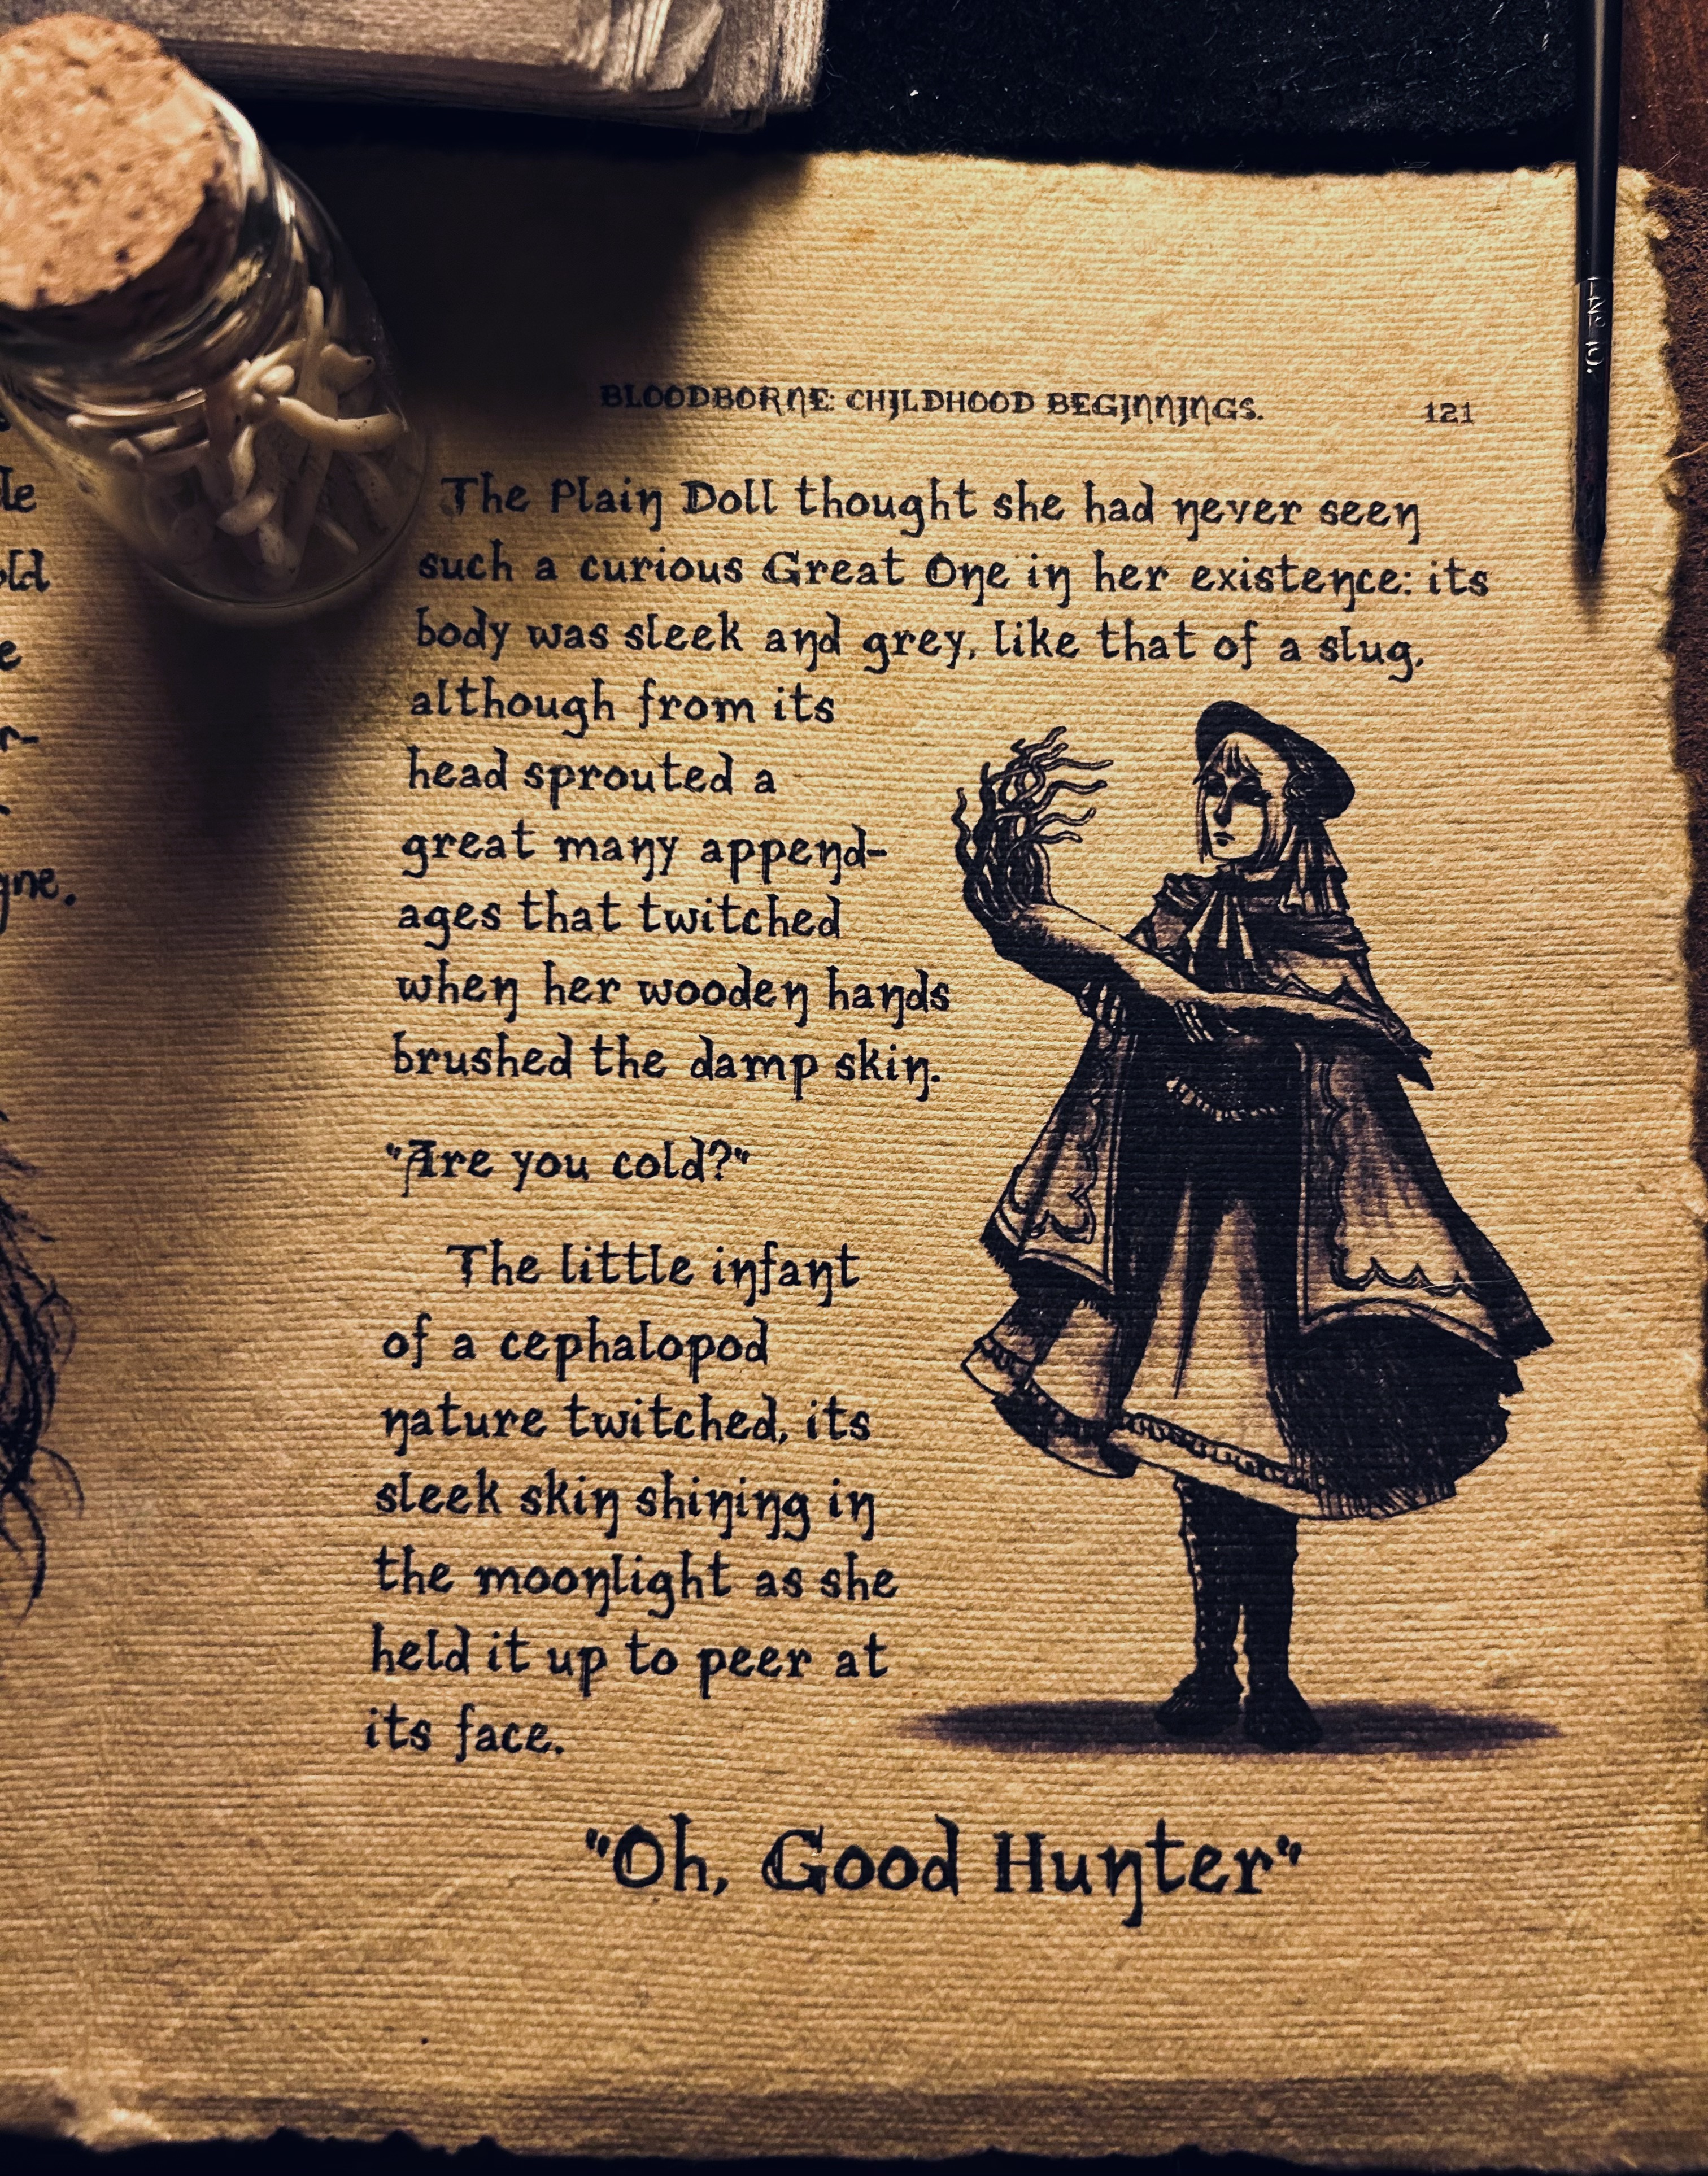 BLOODBORNE: CHILDHOOD BEGINNINGS. 121
The Plain Doll thought she had never seen
such a curious Great One in her existence: its
body was sleek and grey, like that of a slug,
although from its
head sprouted a
great many append-
ages that twitched
when her wooden hands
brushed the damp skin.
"Are you cold?"
The little infant
of a cephalopod
nature twitched, its
sleek skin shining in
the moonlight as she
held it up to peer at
its face.
"Oh, Good Hunter"